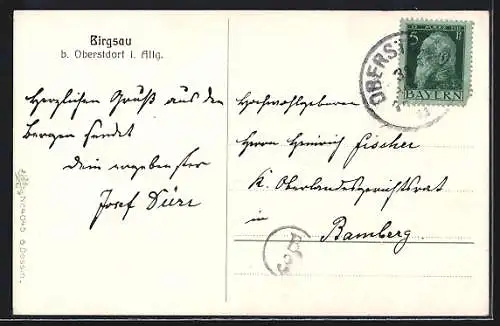 Birgsau
b. Oberstdorf i. Allg.
Herzlichen Gruß aus den
Bergen sendet
dein ergebenster
Josef
Hochwohlgeboren
Herrn Heinrich Fischer
K. Oberlandesgerichtsrat
in
Bamberg.
5 Pf
BAYERN
OBERST
B
3
No 4045